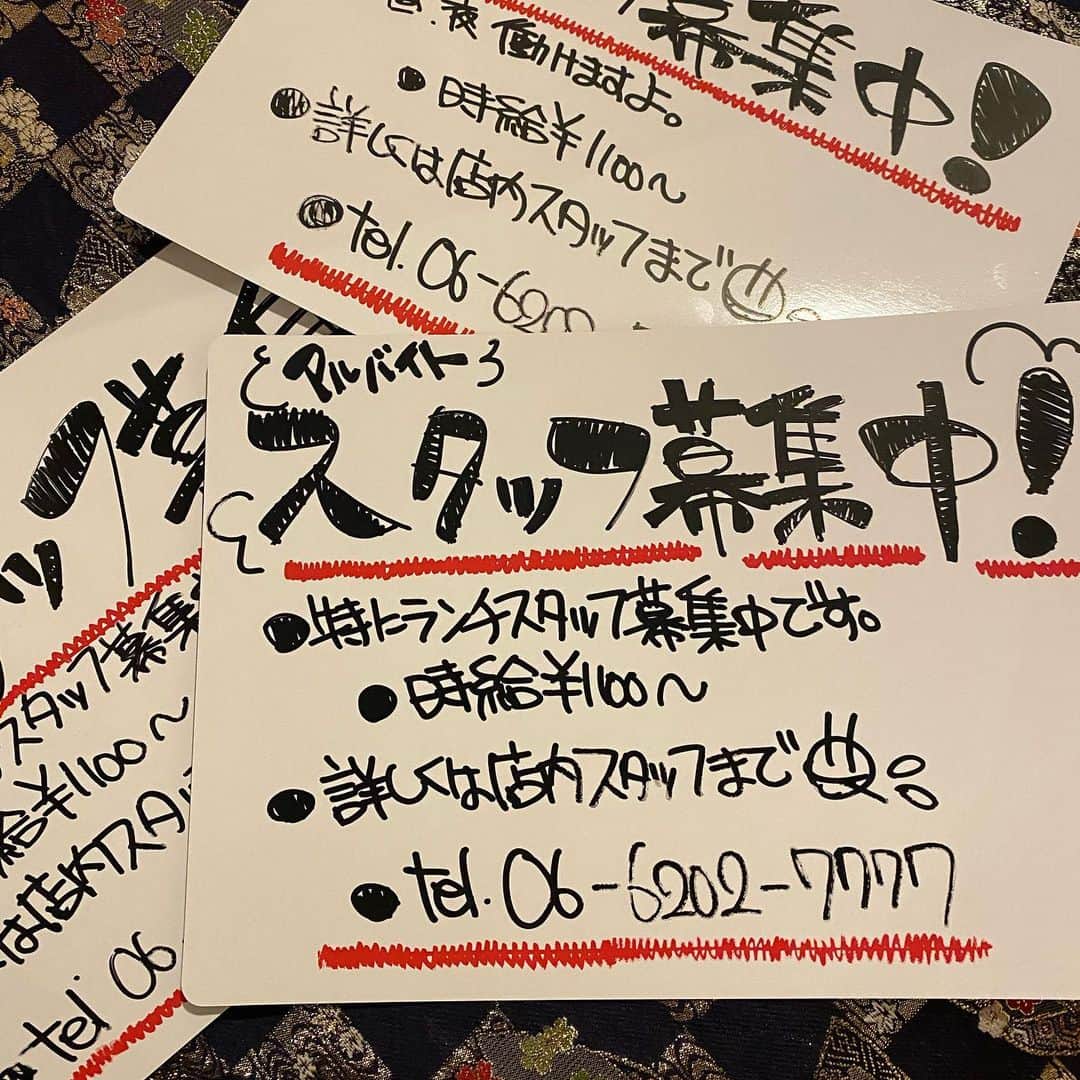 募集中!
夜 働けますよ。
● 時給¥1100〜
●詳しくは店内スタッフまで
●tel. 06-6202
アルバイト
スタッフ募集中!
●特にランチスタッフ募集中です。
●時給¥1100〜
●詳しくは店内スタッフまで
●tel. 06-6202-7777
ッフ
スタッフ募集
給¥1100〜
は店内スタ
tel. 06